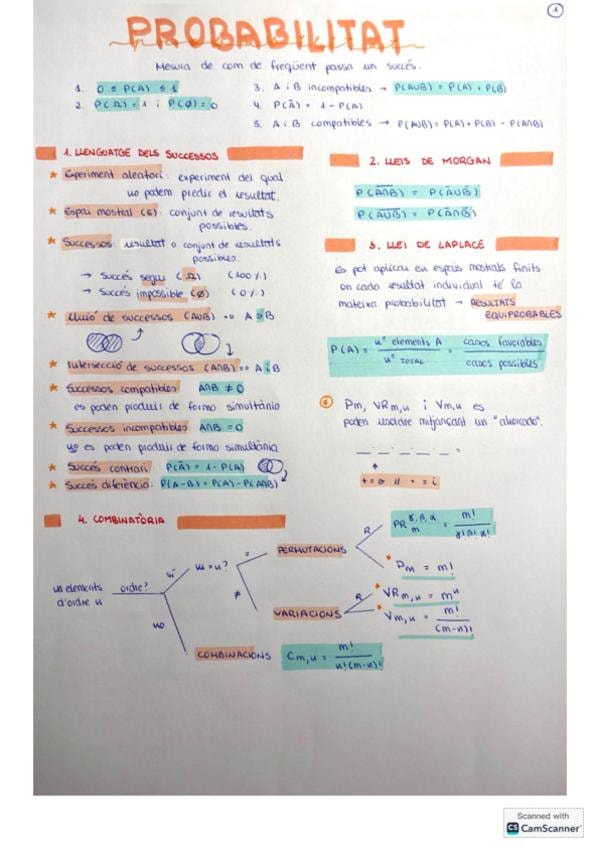 1
PROBABILITAT
Mesura de com de freqüent passa un succés.
1. 0 ≤ P(A) ≤ 1
2. P(Ω) = 1 i P(∅) = 0
3. A i B incompatibles → P(A∪B) = P(A) + P(B)
4. P(Ā) = 1 - P(A)
5. A i B compatibles → P(A∪B) = P(A) + P(B) - P(A∩B)
1. LLENGUATGE DELS SUCCESSOS
★ Experiment aleatori: experiment del qual
no podem predir el resultat.
★ Espai mostral (E): conjunt de resultats
possibles.
★ Successos: resultat o conjunt de resultats
possibles.
→ Succés segur (Ω) (100%)
→ Succés impossible (∅) (0%)
★ Unió de successos (A∪B) → A o B
★ Intersecció de successos (A∩B) → A i B
★ Successos compatibles A∩B ≠ 0
es poden produir de forma simultània
★ Successos incompatibles A∩B = 0
no es poden produir de forma simultània
★ Succés contrari: P(Ā) = 1 - P(A)
★ Succés diferència: P(A-B) = P(A) - P(A∩B)
2. LLEIS DE MORGAN
P(A̅∩̅B̅) = P(Ā∪B̄)
P(A̅∪̅B̅) = P(Ā∩B̄)
3. LLEI DE LAPLACE
Es pot aplicar en espais mostrals finits
on cada resultat individual té la
mateixa probabilitat → RESULTATS
EQUIPROBABLES
P(A) = nº elements A / nº TOTAL = casos favorables / casos possibles
Pm, VRm,n i Vm,n es
poden resoldre mitjançant un "ahorcado".
+ = o // • = i
4. COMBINATÒRIA
m elements
d'ordre n
ordre?
sí
no
m = n?
=
≠
PERMUTACIONS
R
PR m = m! / γ!β!α!
Pm = m!
VARIACIONS
R
VRm,n = mⁿ
Vm,n = m! / (m-n)!
COMBINACIONS Cm,n = m! / n!(m-n)!
Scanned with
CS CamScanner